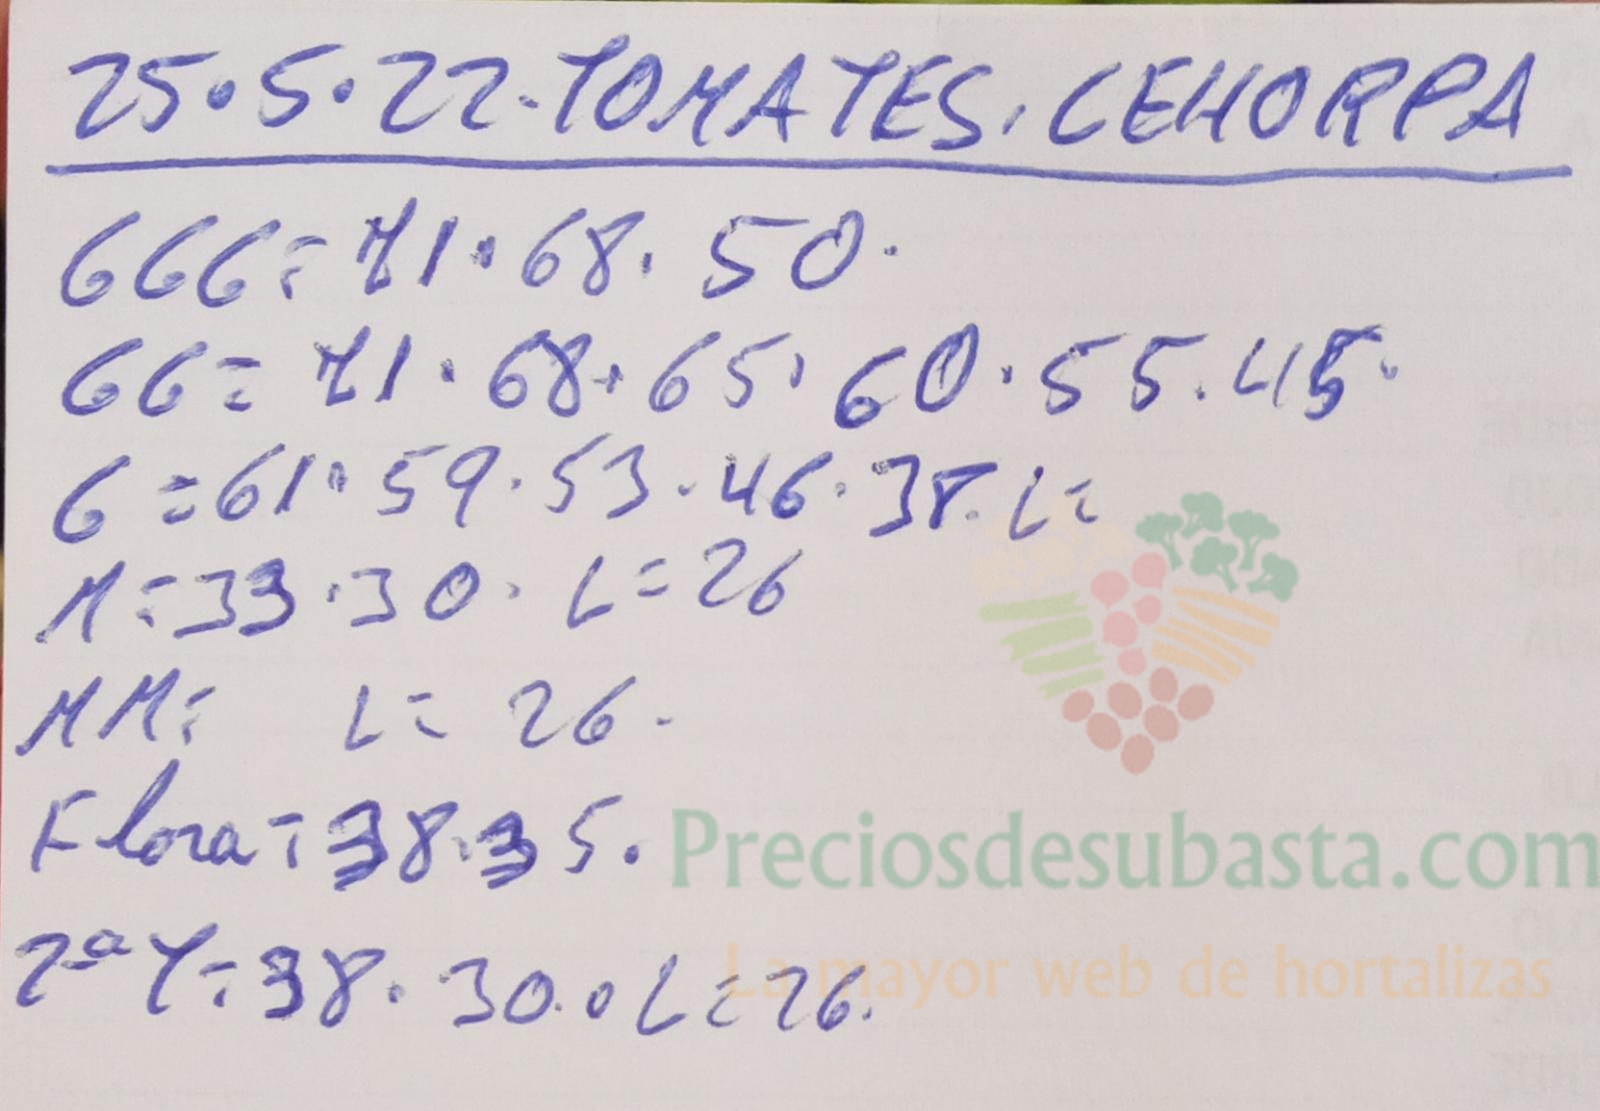 25.5.22.TOMATES.CEHORPA
GGG=71.68.50.
GG=71.68.65.60.55.45.
G=61.59.53.46.38.L=
M=33.30.L=26
MM= L=26.
Flora=38.35.
Preciosdesubasta.com
La mayor web de hortalizas
2ªY=38.30..L=26.